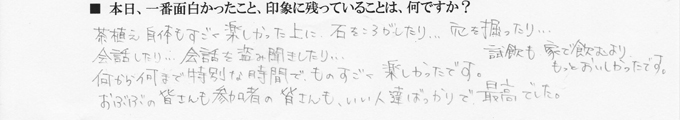 ■ 本日、一番面白かったこと、印象に残っていることは、何ですか？
茶植え自体もすごく楽しかった上に、石をころがしたり… 穴を掘ったり…
会話したり… 会話を盗み聞きしたり… 試飲も家で飲むより
何から何まで特別な時間で、ものすごく楽しかったです。 もっとおいしかったです。
おぶぶの皆さんも参加者の皆さんも、いい人達ばっかりで最高でした。